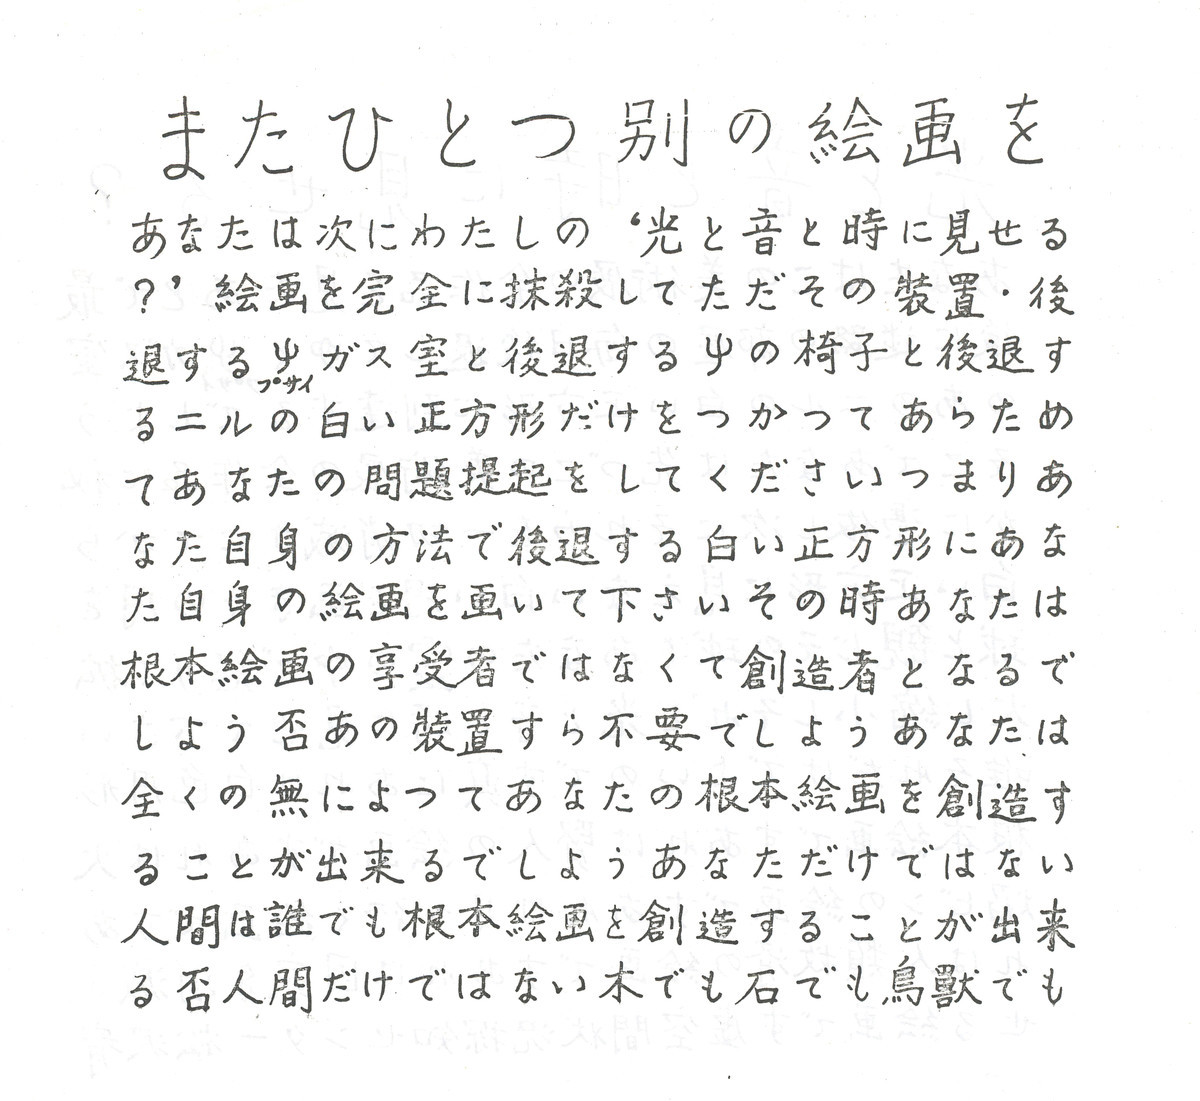 またひとつ別の絵画を
あなたは次にわたしの‘光と音と時に見せる
？’絵画を完全に抹殺してただその装置・後
退するψガス室と後退するψの椅子と後退す
プサイ
るニルの白い正方形だけをつかってあらため
てあなたの問題提起をしてくださいつまりあ
なた自身の方法で後退する白い正方形にあな
た自身の絵画を画いて下さいその時あなたは
根本絵画の享受者ではなくて創造者となるで
しよう否あの装置すら不要でしようあなたは
全くの無によつてあなたの根本絵画を創造す
ることが出来るでしようあなただけではない
人間は誰でも根本絵画を創造することが出来
る否人間だけではない木でも石でも鳥獣でも